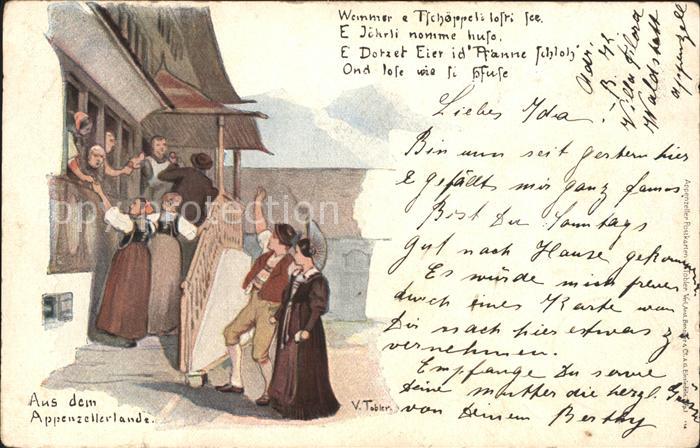 Wemmer e Tschäppeli losti see.
E Jöhrli nomme huso.
E Dotzet Eier id' Pfanne schloh'
Ond lose wie si pfuse
Adr.
B. 
Villa Flora
Waldstatt
Appenzell
Liebes Ida!
Bin nun seit gestern hier
& gefällt mir ganz famos
Bist Du Sonntags
gut nach Hause gekommen
Es würde mich freuen
durch eines Karte von
Dir nach hier etwas z
vernehmen.
Empfange Du sowie
Deine Mutter die herzl. Grüsse
von Deinem Berthy
Aus dem
Appenzellerlande.
V. Tobler
Appenzeller Postkarten
copyright protection